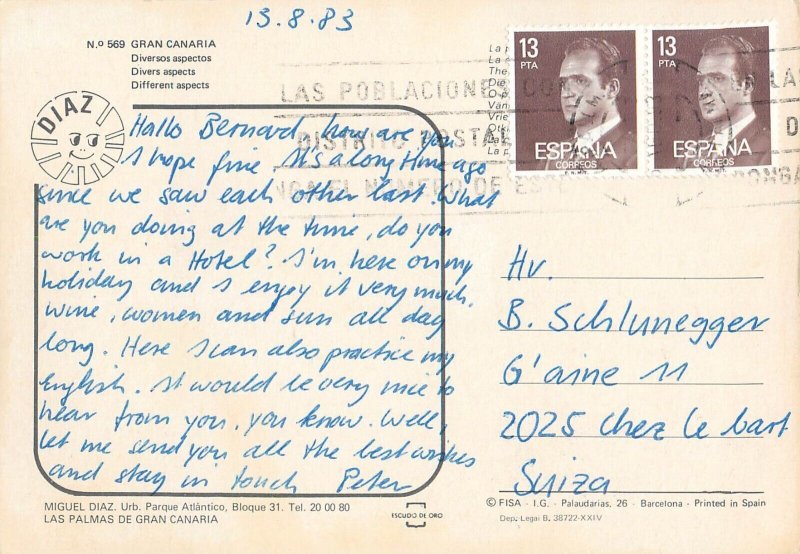 13.8.83
N.º 569 GRAN CANARIA
Diversos aspectos
Divers aspects
Different aspects
DIAZ
Hallo Bernard, how are you,
I hope fine. It's a long time ago
since we saw each other last. What
are you doing at the time, do you
work in a Hotel? I'm here on my
holiday and I enjoy it very much.
wine, women and sun all day
long. Here I can also practice my
English. It would be very nice to
hear from you, you know. Well,
let me send you all the best wishes
and stay in touch Peter
MIGUEL DIAZ. Urb. Parque Atlántico, Bloque 31. Tel. 20 00 80
LAS PALMAS DE GRAN CANARIA
ESCUDO DE ORO
13
PTA
ESPAÑA
CORREOS
13
PTA
ESPAÑA
CORREOS
LAS POBLACIONES CON
DISTRITO POSTAL
EL NUMERO DE
Hv.
B. Schlunegger
G'aine 11
2025 Chez le bart
Suiza
© FISA - I.G. - Palaudarias, 26 - Barcelona - Printed in Spain
Dep. Legal B. 38722-XXIV